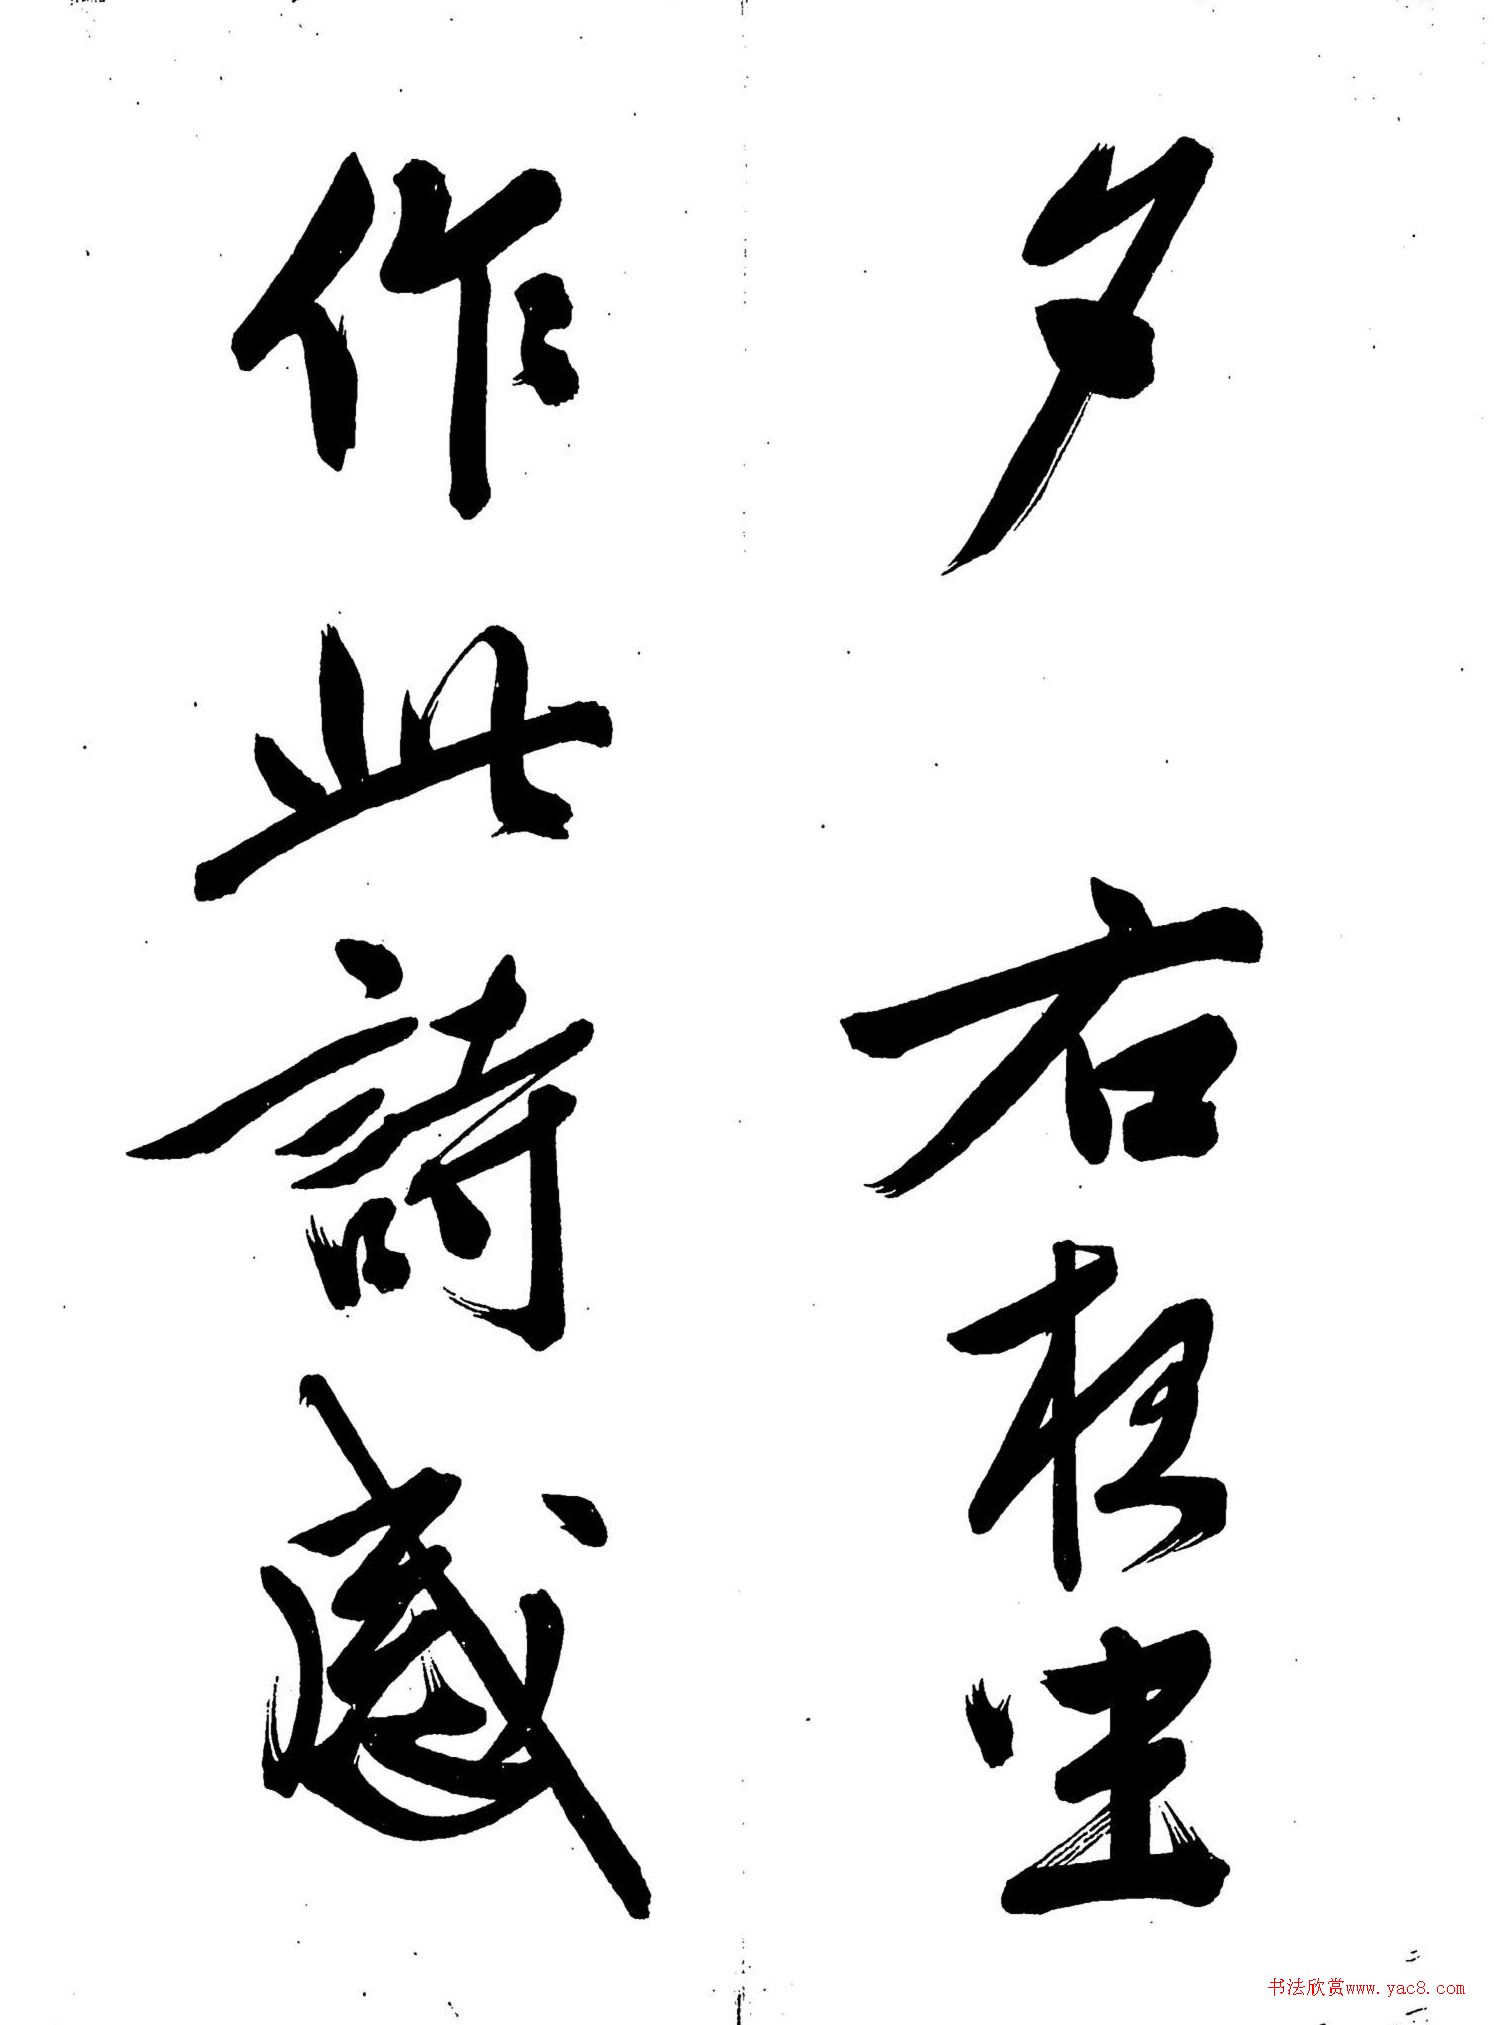 夕 右
作此詩感
书法欣赏www.yac8.com